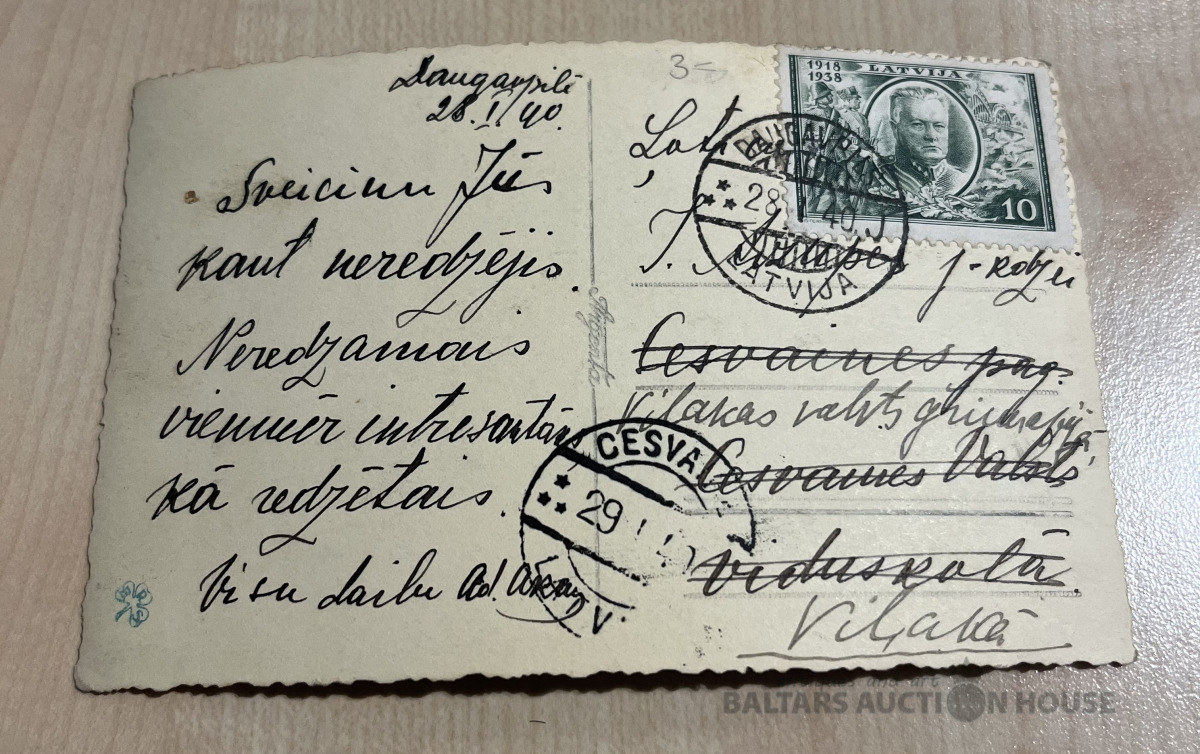 Daugavpilī
28.I 40.
Sveicinu Jūs
kaut neredzējis.
Neredzamais
vienmēr intresantāks
kā redzētais.
Visu daiļu Ad.
3-
1918
1938
LATVIJA
10
DAUGAVPILS
28 40
LATVIJA
J. j-kdzei
Cesvaines pag.
Viļakas valsts ģimnāzijā
Cesvaines Valsts
vidusskolā
Viļakā
CESVAI
29
BALTARS AUCTION HOUSE